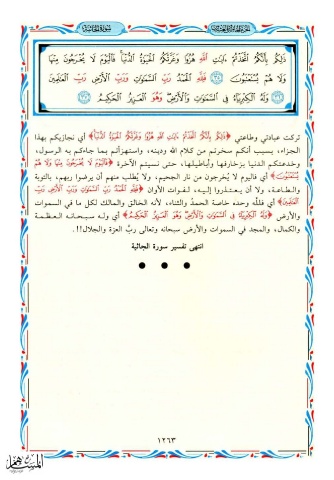 سورة الجاثية
ذَٰلِكُم بِأَنَّكُمُ اتَّخَذْتُمْ ءَايَٰتِ اللَّهِ هُزُوًا وَغَرَّتْكُمُ الْحَيَوٰةُ الدُّنْيَا فَالْيَوْمَ لَا يُخْرَجُونَ مِنْهَا
وَلَا هُمْ يُسْتَعْتَبُونَ ﴿٣٥﴾ فَلِلَّهِ الْحَمْدُ رَبِّ السَّمَٰوَٰتِ وَرَبِّ الْأَرْضِ رَبِّ الْعَٰلَمِينَ
﴿٣٦﴾ وَلَهُ الْكِبْرِيَآءُ فِي السَّمَٰوَٰتِ وَالْأَرْضِ وَهُوَ الْعَزِيزُ الْحَكِيمُ ﴿٣٧﴾
تركت عبادتي وطاعتي ﴿ذَٰلِكُم بِأَنَّكُمُ اتَّخَذْتُمْ ءَايَٰتِ اللَّهِ هُزُوًا وَغَرَّتْكُمُ الْحَيَوٰةُ الدُّنْيَا﴾ أي نجازيكم بهذا
الجزاء، بسبب أنكم سخرتم من كلام الله ودينه، واستهزأتم بما جاءكم به الرسول،
وخدعتكم الدنيا بزخارفها وأباطيلها، حتى نسيتم الآخرة ﴿فَالْيَوْمَ لَا يُخْرَجُونَ مِنْهَا وَلَا هُمْ
يُسْتَعْتَبُونَ﴾ أي فاليوم لا يُخرجون من نار الجحيم، ولا يُطلب منهم أن يرضوا ربهم، بالتوبة
والطاعة، ولا أن يعتذروا إليه، لفوات الأوان ﴿فَلِلَّهِ الْحَمْدُ رَبِّ السَّمَٰوَٰتِ وَرَبِّ الْأَرْضِ رَبِّ
الْعَٰلَمِينَ﴾ أي فللَّه وحده خاصة الحمدُ والثناء، لأنه الخالق والمالك لكل ما في السموات
والأرض ﴿وَلَهُ الْكِبْرِيَآءُ فِي السَّمَٰوَٰتِ وَالْأَرْضِ وَهُوَ الْعَزِيزُ الْحَكِيمُ﴾ أي وله سبحانه العظمة
والكمال، والمجد في السموات والأرض سبحانه وتعالى ربُّ العزة والجلال!!.
انتهى تفسير سورة الجاثية
١٢٦٣